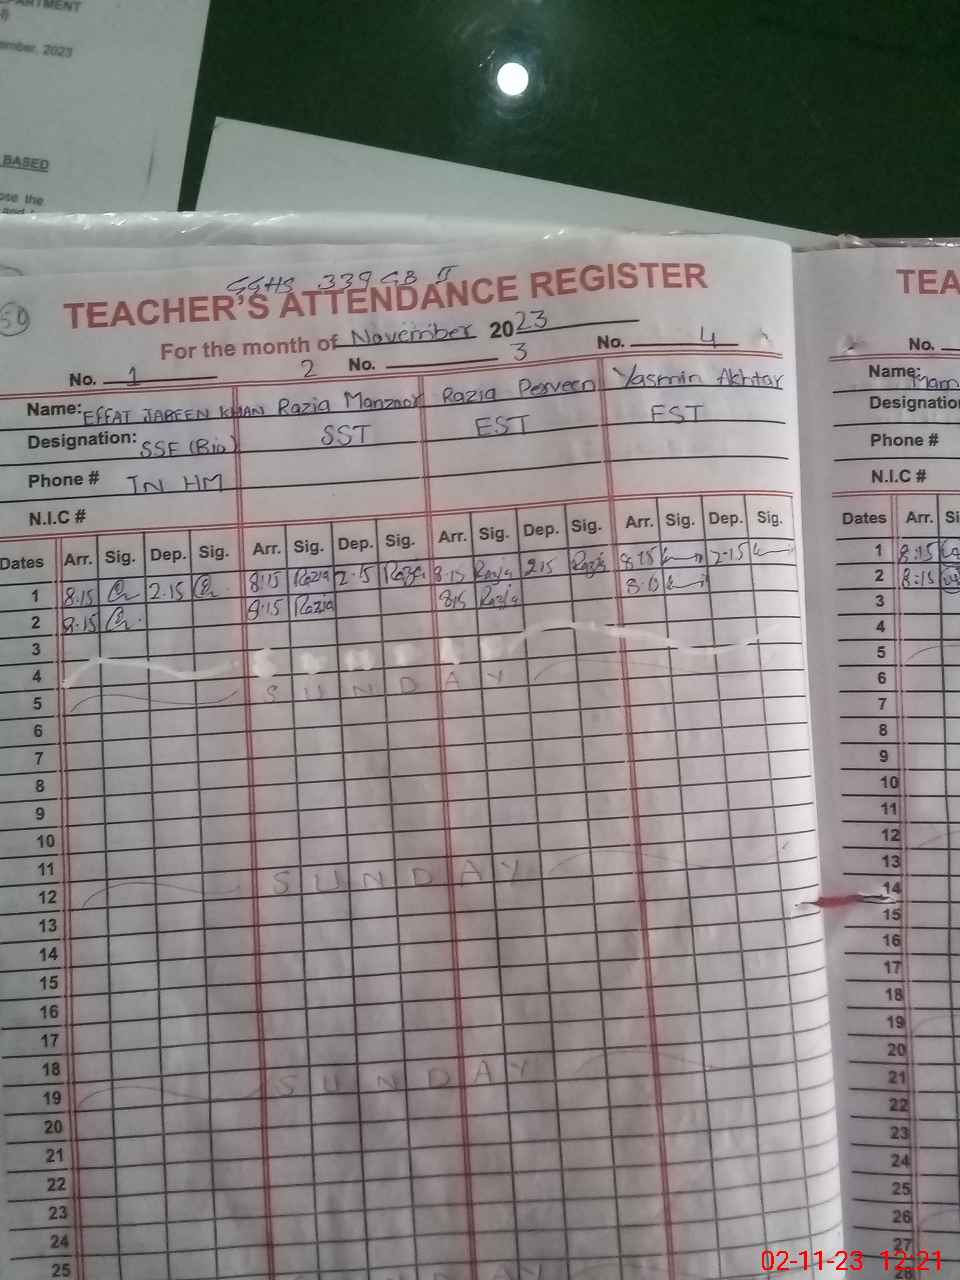 PARTMENT
ember, 2023
BASED
ose the
GGHS 339 GB II
50
TEACHER'S ATTENDANCE REGISTER
For the month of November 2023
No. 1 2 No. 3 No. 4
Name: EFFAT JABEEN KHAN Razia Manzoor Razia Perveen Yasmin Akhtar
Designation: SSE (Bio) SST EST EST
Phone # IN HM
N.I.C #
Dates Arr. Sig. Dep. Sig. Arr. Sig. Dep. Sig. Arr. Sig. Dep. Sig. Arr. Sig. Dep. Sig.
1 8.15 2.15 8:15 Razia 2.15 Razia 8.15 Razia 2.15 Razia 8.15 2.15
2 8.15 8:15 Razia 8.15 Razia
3
4
5 SUNDAY
6
7
8
9
10
11
12 SUNDAY
13
14
15
16
17
18
19 SUNDAY
20
21
22
23
24
25
TEA
No.
Name:
Designation
Phone #
N.I.C #
Dates Arr. Si
1 8:15
2 8:15
3
4
5
6
7
8
9
10
11
12
13
14
15
16
17
18
19
20
21
22
23
24
25
26
27
28
02-11-23 12:21